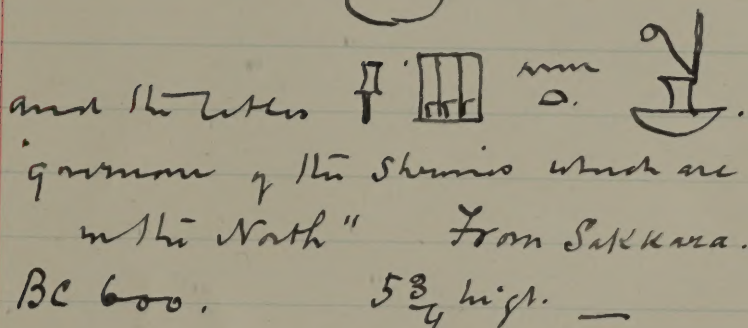 and the titles .
"governor of the Shrines which are
in the North" From Sakkara.
BC 600. 5 3/4 high. —